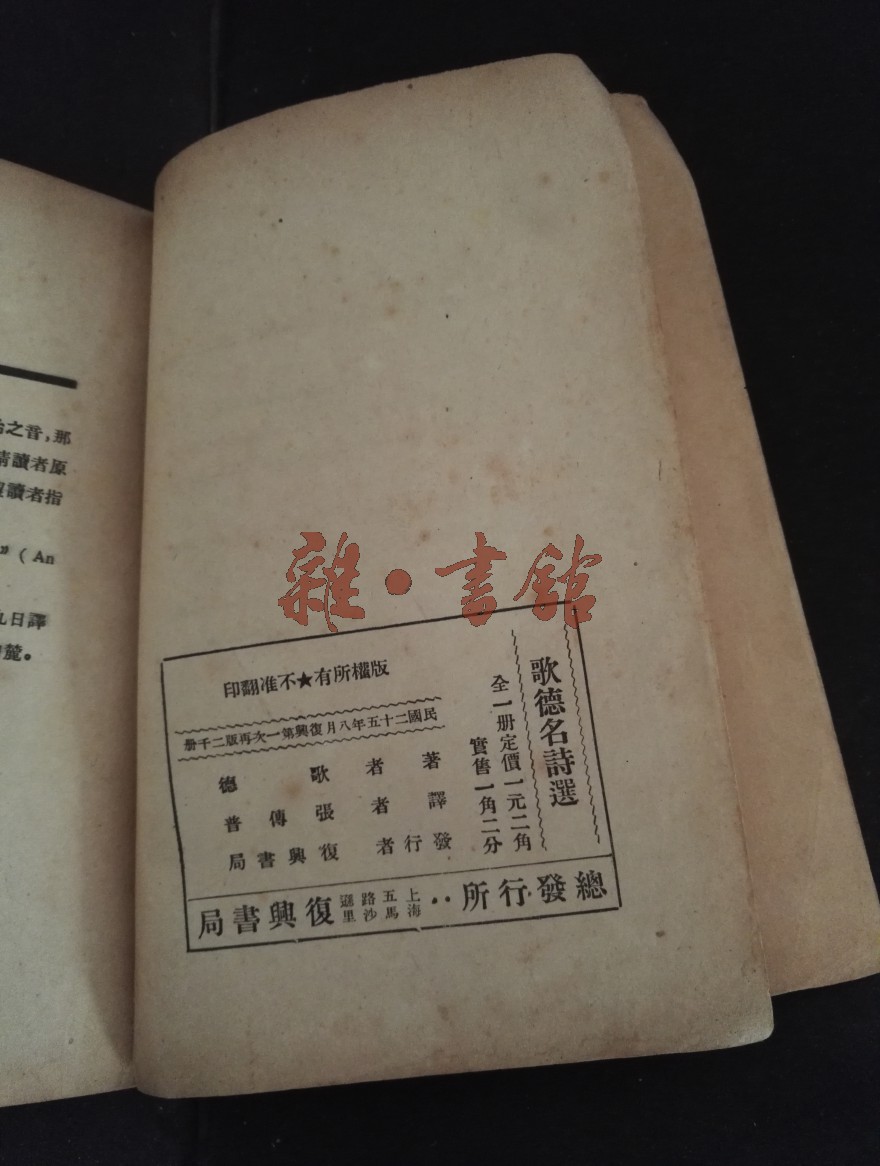 之音,那
請讀者原
讀者指
” ( An
日譯
麓。
雜·書館
歌德名詩選
全一册定價一元二角
實售一角二分
版權所有★不准翻印
民國二十五年八月復興第一次再版二千册
著者 歌德
譯者 張傳普
發行者 復興書局
總發行所:上海五馬路沙遜里復興書局